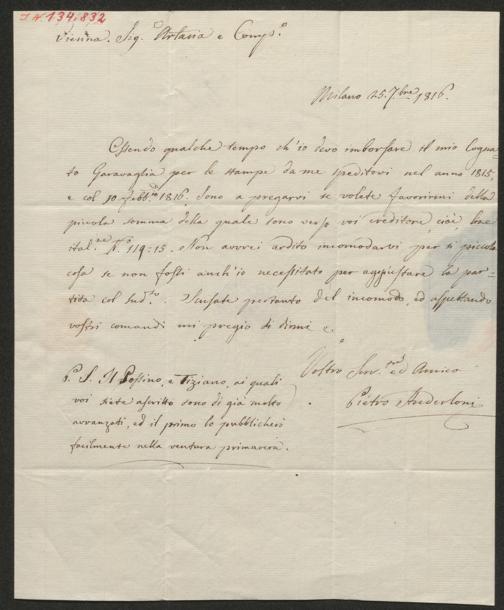 I N 134.832
Vienna. Sig.ri Artaria e Comp.o
Milano 25. 7.bre 1816.
Essendo qualche tempo ch'io devo imborsare il mio Cogna-
to Garavaglia per le stampe da me speditovi nel anno 1815,
e col 10. Febb.io 1816. Sono a pregarvi se volete favorirmi della
piccola somma della quale sono verso voi creditore, cioè lire
ital.ne N.o 114:15. Non avrei ardito incomodarvi per sì piccola
cosa se non fossi anch'io necessitato per aggiustare la par-
tita col sud.to. Scusate pertanto del incomodo, ed aspettando
vostri comandi mi pregio di dirmi e.
Vostro Serv. ed Amico
Pietro Anderloni
P. S. Il Possino, e Tiziano, ai quali
voi siete ascritto sono di già molto
avvanzati, ed il primo lo pubblicherò
facilmente nella ventura primavera.